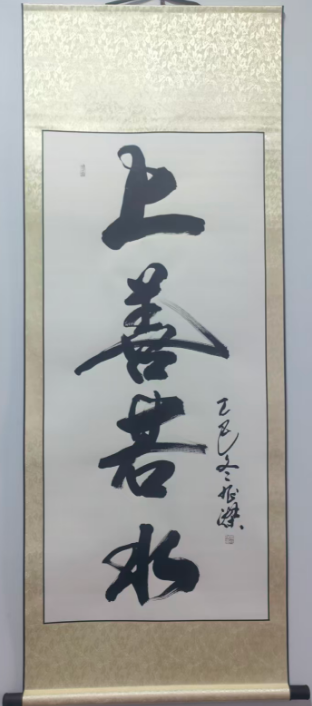 上善若水
乙巳冬